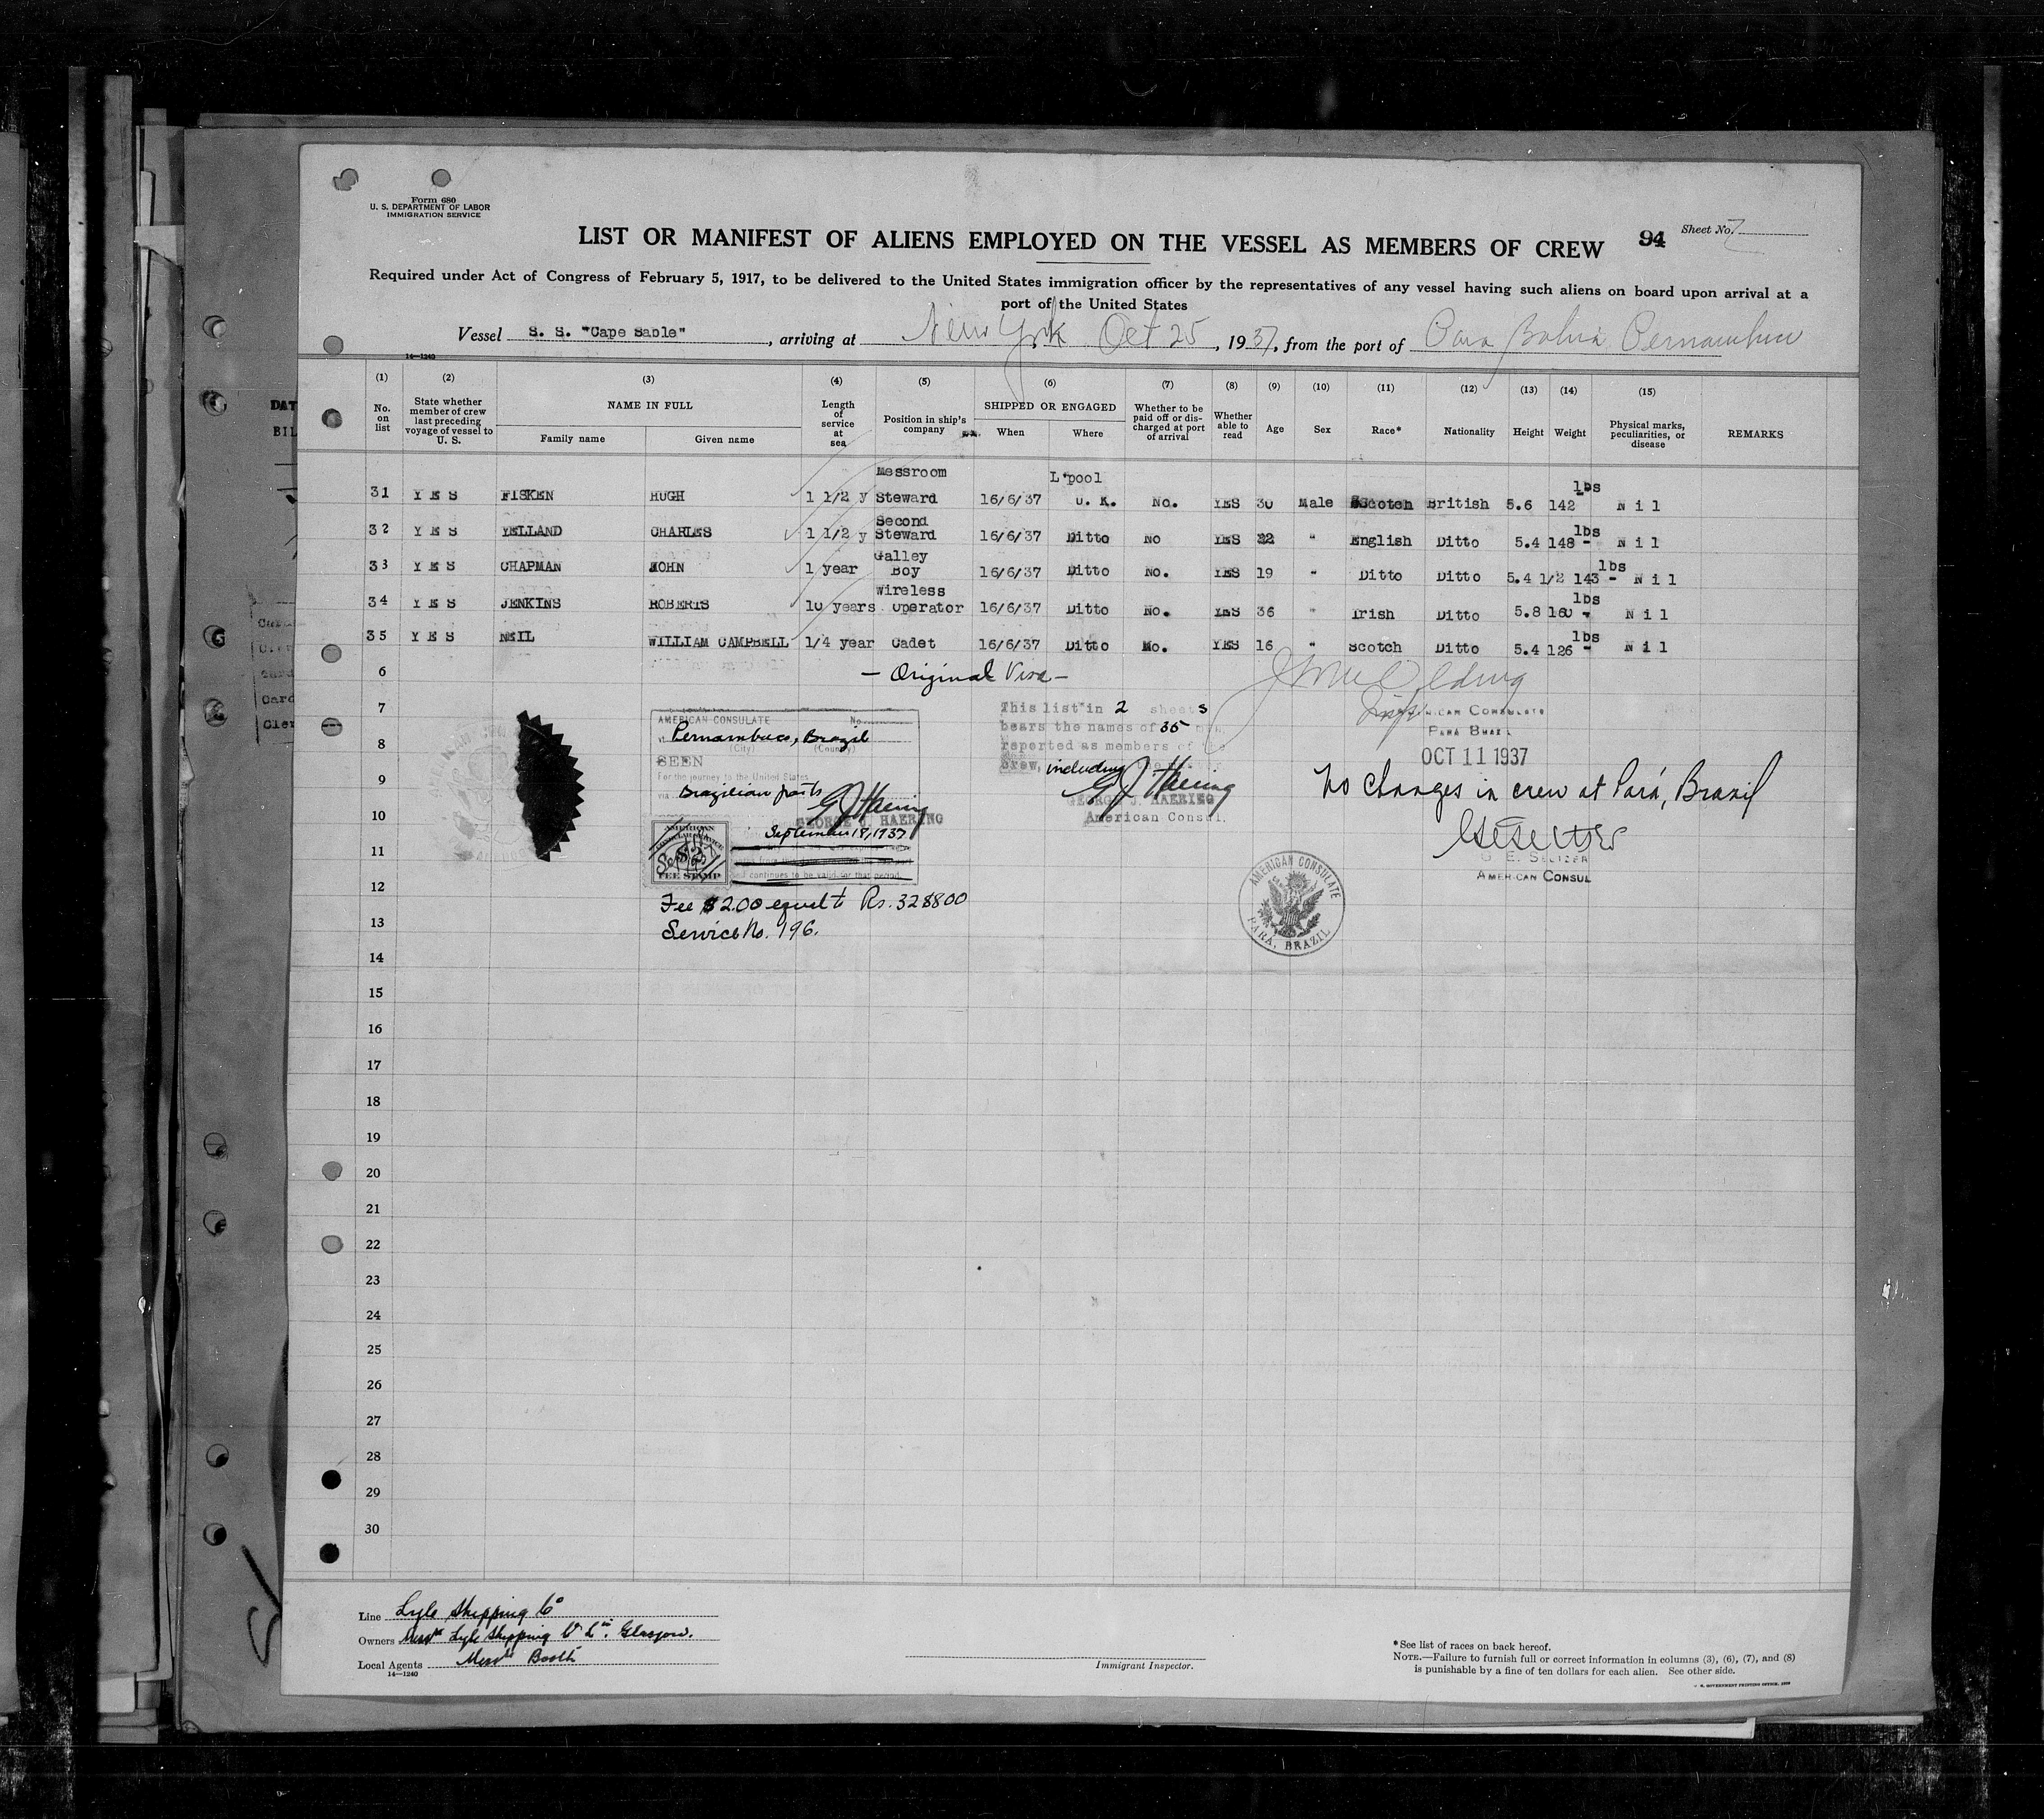 Form 680
U. S. DEPARTMENT OF LABOR
IMMIGRATION SERVICE
LIST OR MANIFEST OF ALIENS EMPLOYED ON THE VESSEL AS MEMBERS OF CREW
94
Sheet No.
Required under Act of Congress of February 5, 1917, to be delivered to the United States immigration officer by the representatives of any vessel having such aliens on board upon arrival at a
port of the United States
Vessel S. S. "Cape Sable", arriving at New York Oct 25, 1937, from the port of Para Bahia Pernambuco
14—1240
(1) (2) (3) (4) (5) (6) (7) (8) (9) (10) (11) (12) (13) (14) (15)
No. on list
State whether member of crew last preceding voyage of vessel to U. S.
NAME IN FULL
Family name
Given name
Length of service at sea
Position in ship's company
SHIPPED OR ENGAGED
When
Where
Whether to be paid off or discharged at port of arrival
Whether able to read
Age
Sex
Race*
Nationality
Height
Weight
Physical marks, peculiarities, or disease
REMARKS
31 YES FISKEN HUGH 1 1/2 y Messroom Steward 16/6/37 L'pool U. K. No. YES 30 Male Scotch British 5.6 142 lbs Nil
32 YES YELLAND CHARLES 1 1/2 y Second Steward 16/6/37 Ditto No YES 22 " English Ditto 5.4 148 lbs Nil
33 YES CHAPMAN JOHN 1 year Galley Boy 16/6/37 Ditto No. YES 19 " Ditto Ditto 5.4 1/2 143 lbs Nil
34 YES JENKINS ROBERTS 10 years Wireless Operator 16/6/37 Ditto No. YES 36 " Irish Ditto 5.8 160 lbs Nil
35 YES NEIL WILLIAM CAMPBELL 1/4 year Cadet 16/6/37 Ditto No. YES 16 " Scotch Ditto 5.4 126 lbs Nil
6
— Original Visa —
7
8
9
10
11
12
13
14
15
16
17
18
19
20
21
22
23
24
25
26
27
28
29
30
AMERICAN CONSULATE No.
at Pernambuco, Brazil
(City) (Country)
SEEN
For the journey to the United States
via Brazilian ports
G J Haering
GEORGE J. HAERING
September 18, 1937
continues to be valid for that period.
AMERICAN
FEE STAMP
Fee $2.00 equal to Rs. 32$800
Service No. 196.
This list in 2 sheets
bears the names of 35
reported as members of the
crew, including the
G J Haering
GEORGE J. HAERING
American Consul.
AMERICAN CONSULATE
PARÁ BRAZIL
OCT 11 1937
No changes in crew at Pará, Brazil
G. E. SELTZER
AMERICAN CONSUL
AMERICAN CONSULATE
PARA, BRAZIL
Line Lyle Shipping Co
Owners Messrs Lyle Shipping Co Ltd. Glasgow.
Local Agents Messrs Booth
14—1240
Immigrant Inspector.
*See list of races on back hereof.
NOTE.—Failure to furnish full or correct information in columns (3), (6), (7), and (8)
is punishable by a fine of ten dollars for each alien. See other side.